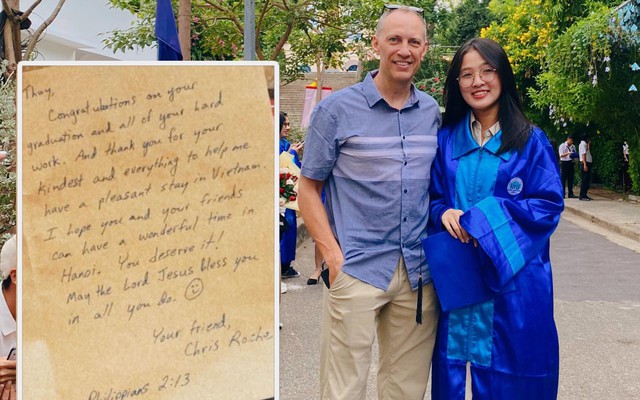 Thuy,
Congratulations on your
graduation and all of your hard
work. And thank you for your
kindest and everything to help me
have a pleasant stay in Vietnam.
I hope you and your friends
can have a wonderful time in
Hanoi. You deserve it!
May the Lord Jesus bless you
in all you do. ☺
Your friend,
Chris Roche
Philippians 2:13